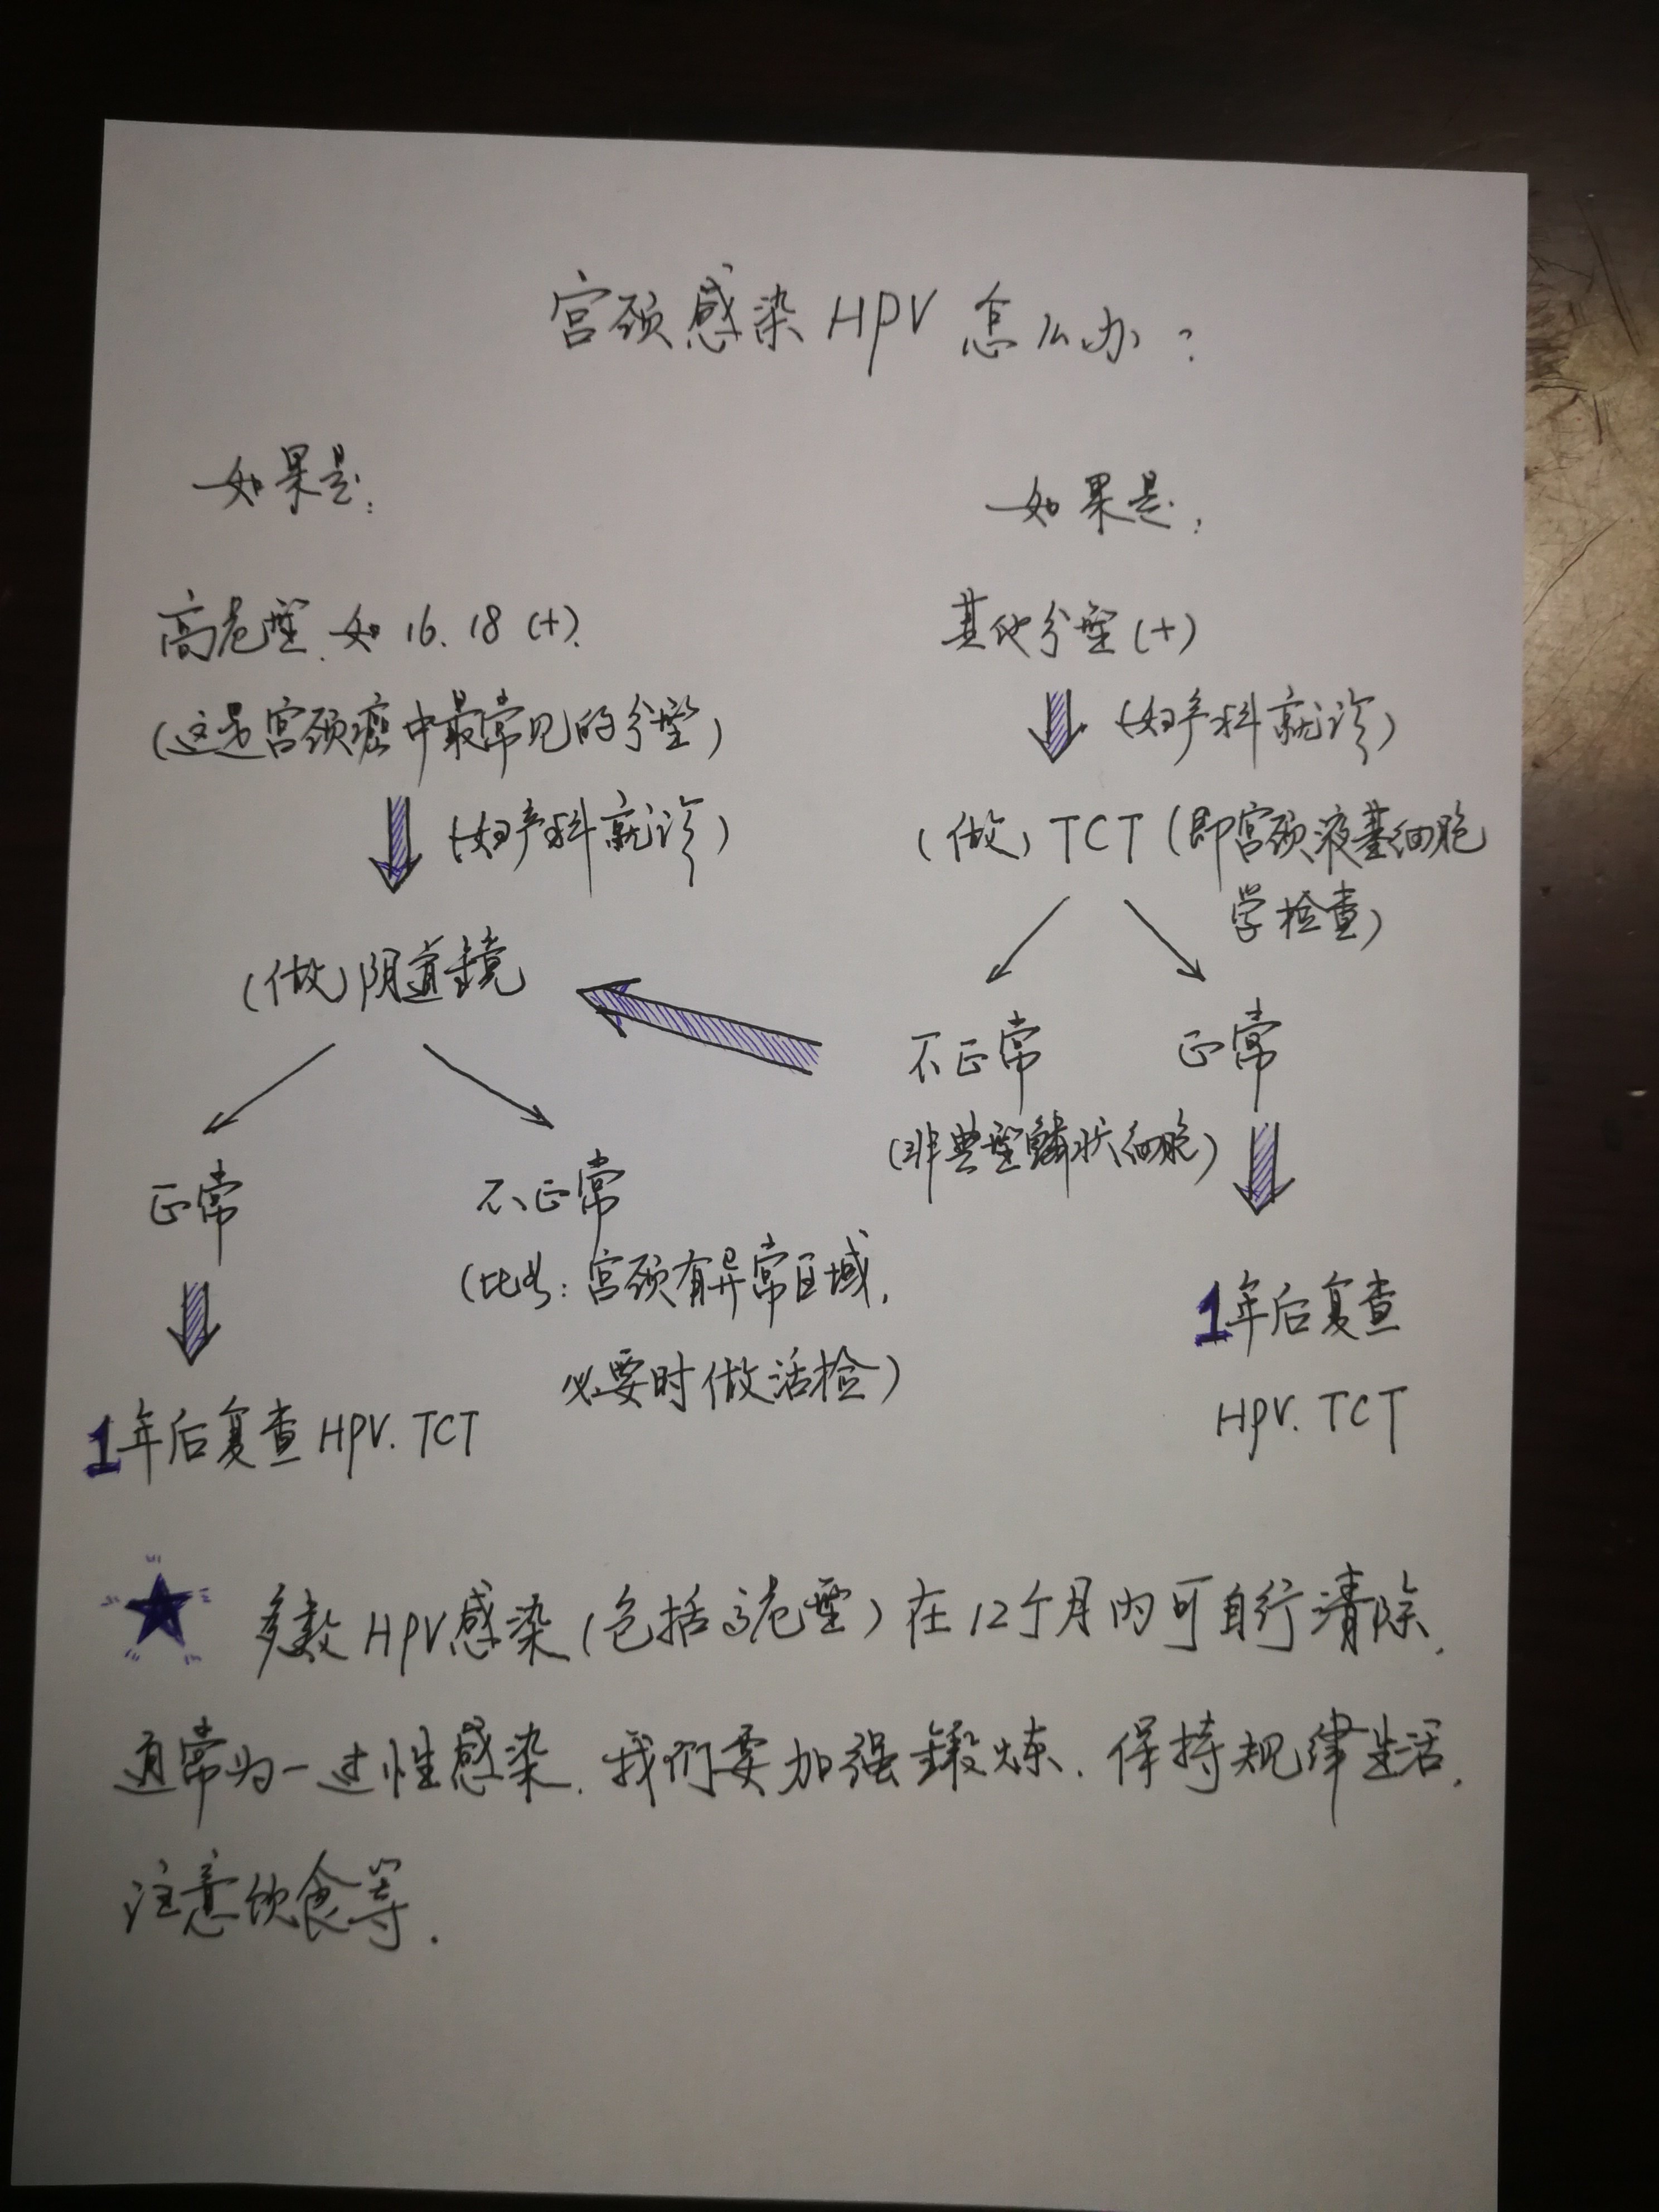 宫颈感染HPV怎么办?
如果是:
高危型.如16.18(+).
(这是宫颈癌中最常见的分型)
(妇产科就诊)
(做)阴道鏡
正常
不正常
(比如:宫颈有异常区域,
必要时做活检)
1年后复查HPV.TCT
如果是:
其他分型(+)
(妇产科就诊)
(做)TCT(即宫颈液基细胞
学检查)
不正常
正常
(非典型鳞状细胞)
1年后复查
HPV.TCT
多数HPV感染(包括高危型)在12个月内可自行清除,
通常为一过性感染.我们要加强鍛炼.保持规律生活,
注意饮食等.